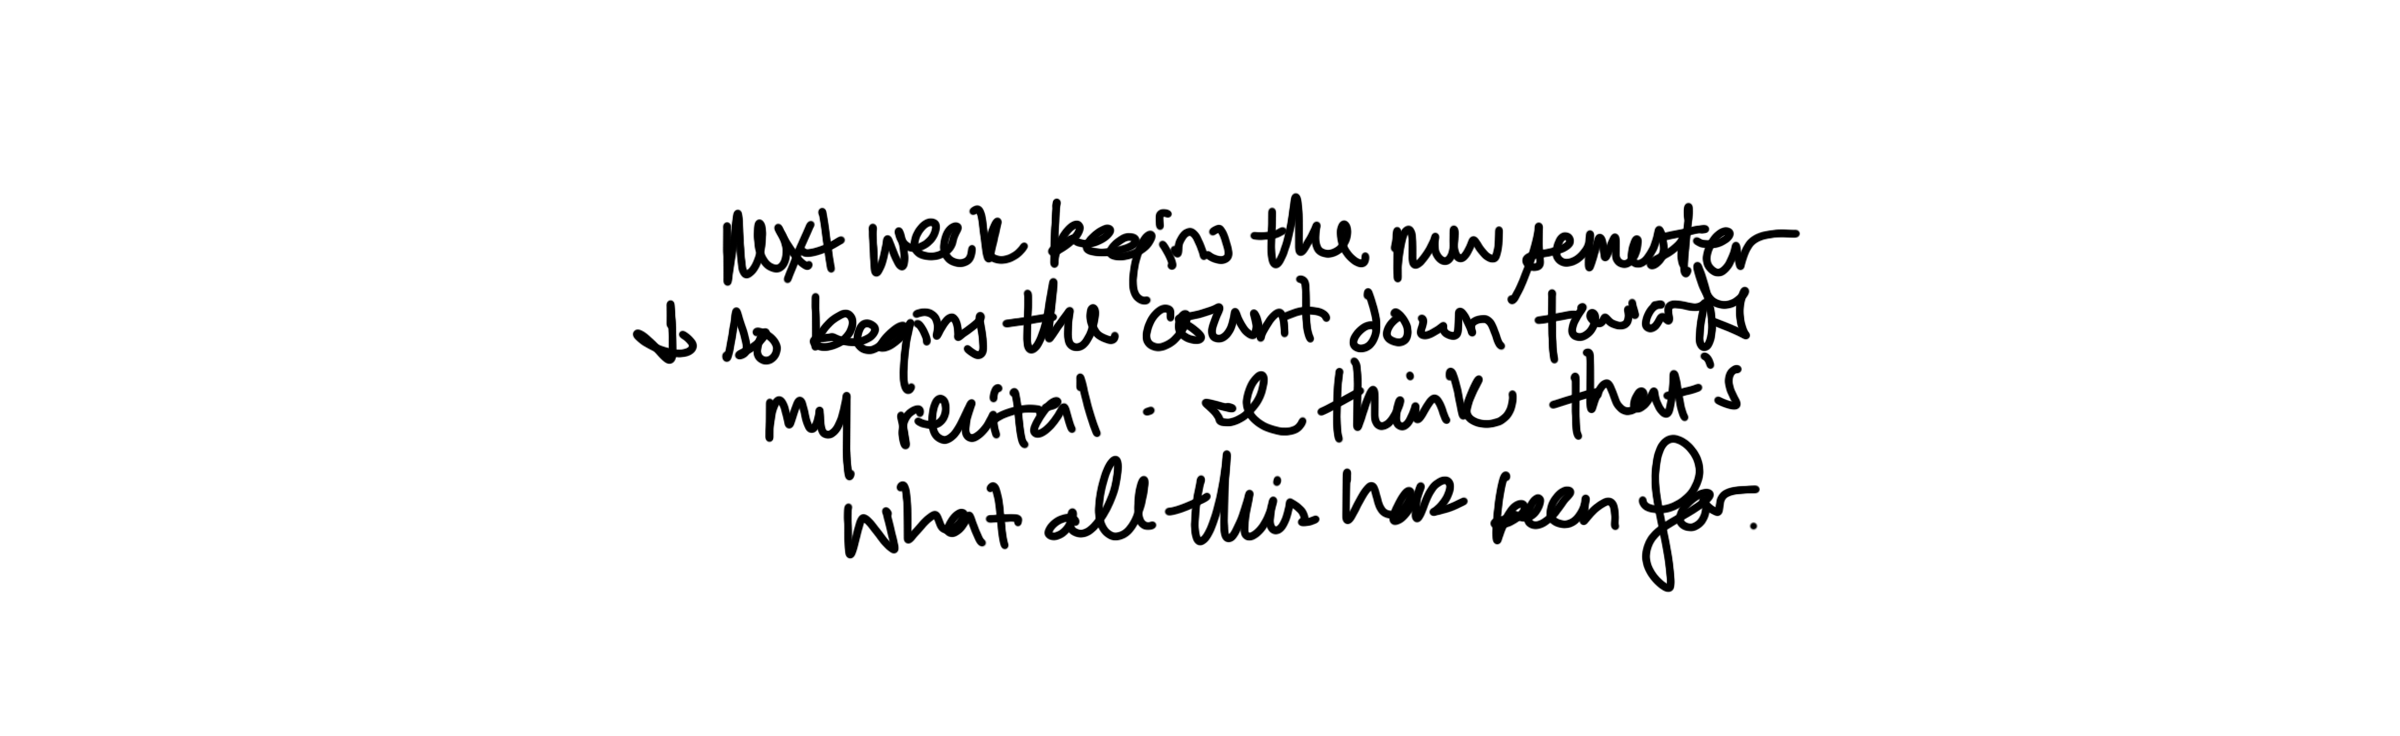 Next week begins the new semester
↓ so begins the count down towards
my recital. I think that's
what all this has been for.